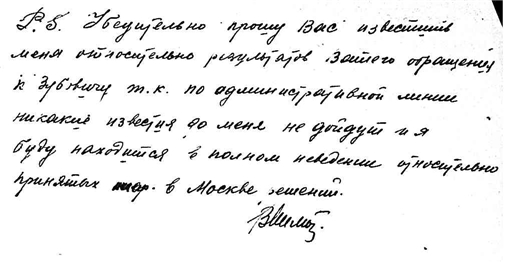 P.S. Убедительно прошу Вас известить
меня относительно результатов Вашего обращения
к Зубовичу т.к. по административной линии
никакие известия до меня не дойдут и я
буду находится в полном неведении относительно
принятых в Москве решений.